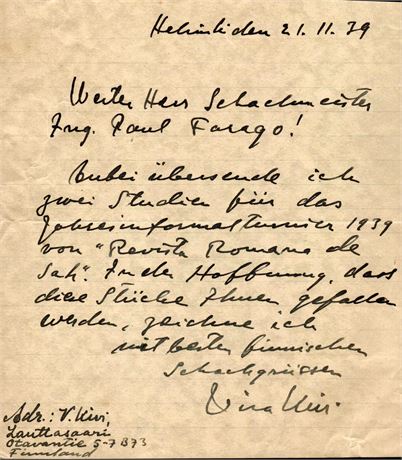 Helsinki den 21.11.39
Werter Herr Schachmeister
Ing. Paul Farago!
Anbei übersende ich
zwei Studien für das
Jahresinformalturnier 1939
von "Revista Romana de
Sah". In der Hoffnung, dass
diese Stücke Ihnen gefallen
werden, zeichne ich
mit besten finnischen
Schachgrüssen
Visa Kivi
Adr.: V. Kivi,
Lauttasaari
Otavantie 5-7 B73
Finnland